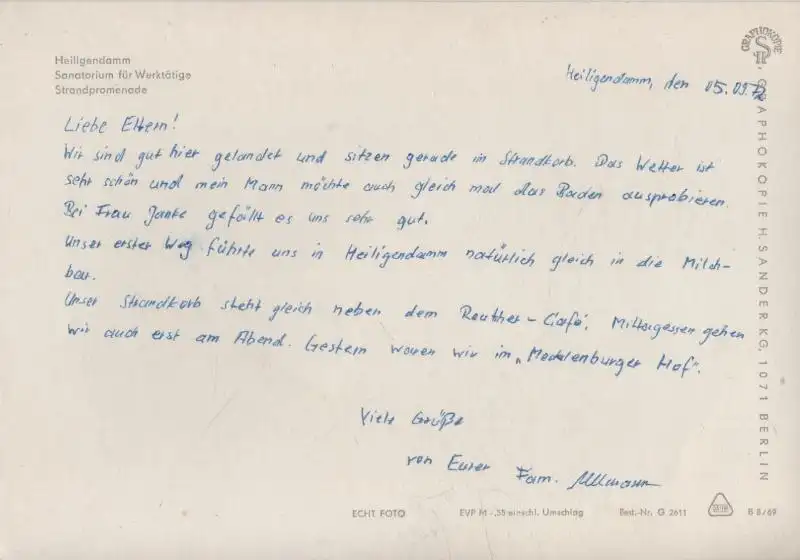 Heiligendamm
Sanatorium für Werktätige
Strandpromenade
GRAPHOKOPIE
Heiligendamm, den 05.09.72
Liebe Eltern!
Wir sind gut hier gelandet und sitzen gerade im Strandkorb. Das Wetter ist
sehr schön und mein Mann möchte auch gleich mal das Baden ausprobieren.
Bei Frau Janke gefällt es uns sehr gut.
Unser erster Weg führte uns in Heiligendamm natürlich gleich in die Milch-
bar.
Unser Strandkorb steht gleich neben dem Reuther-Café. Mittagessen gehen
wir auch erst am Abend. Gestern waren wir im „Mecklenburger Hof".
Viele Grüße
von Eurer Fam.
GRAPHOKOPIE H. SANDER KG, 1071 BERLIN
ECHT FOTO
EVP M -,55 einschl. Umschlag
Best.-Nr. G 2611
B 8/69